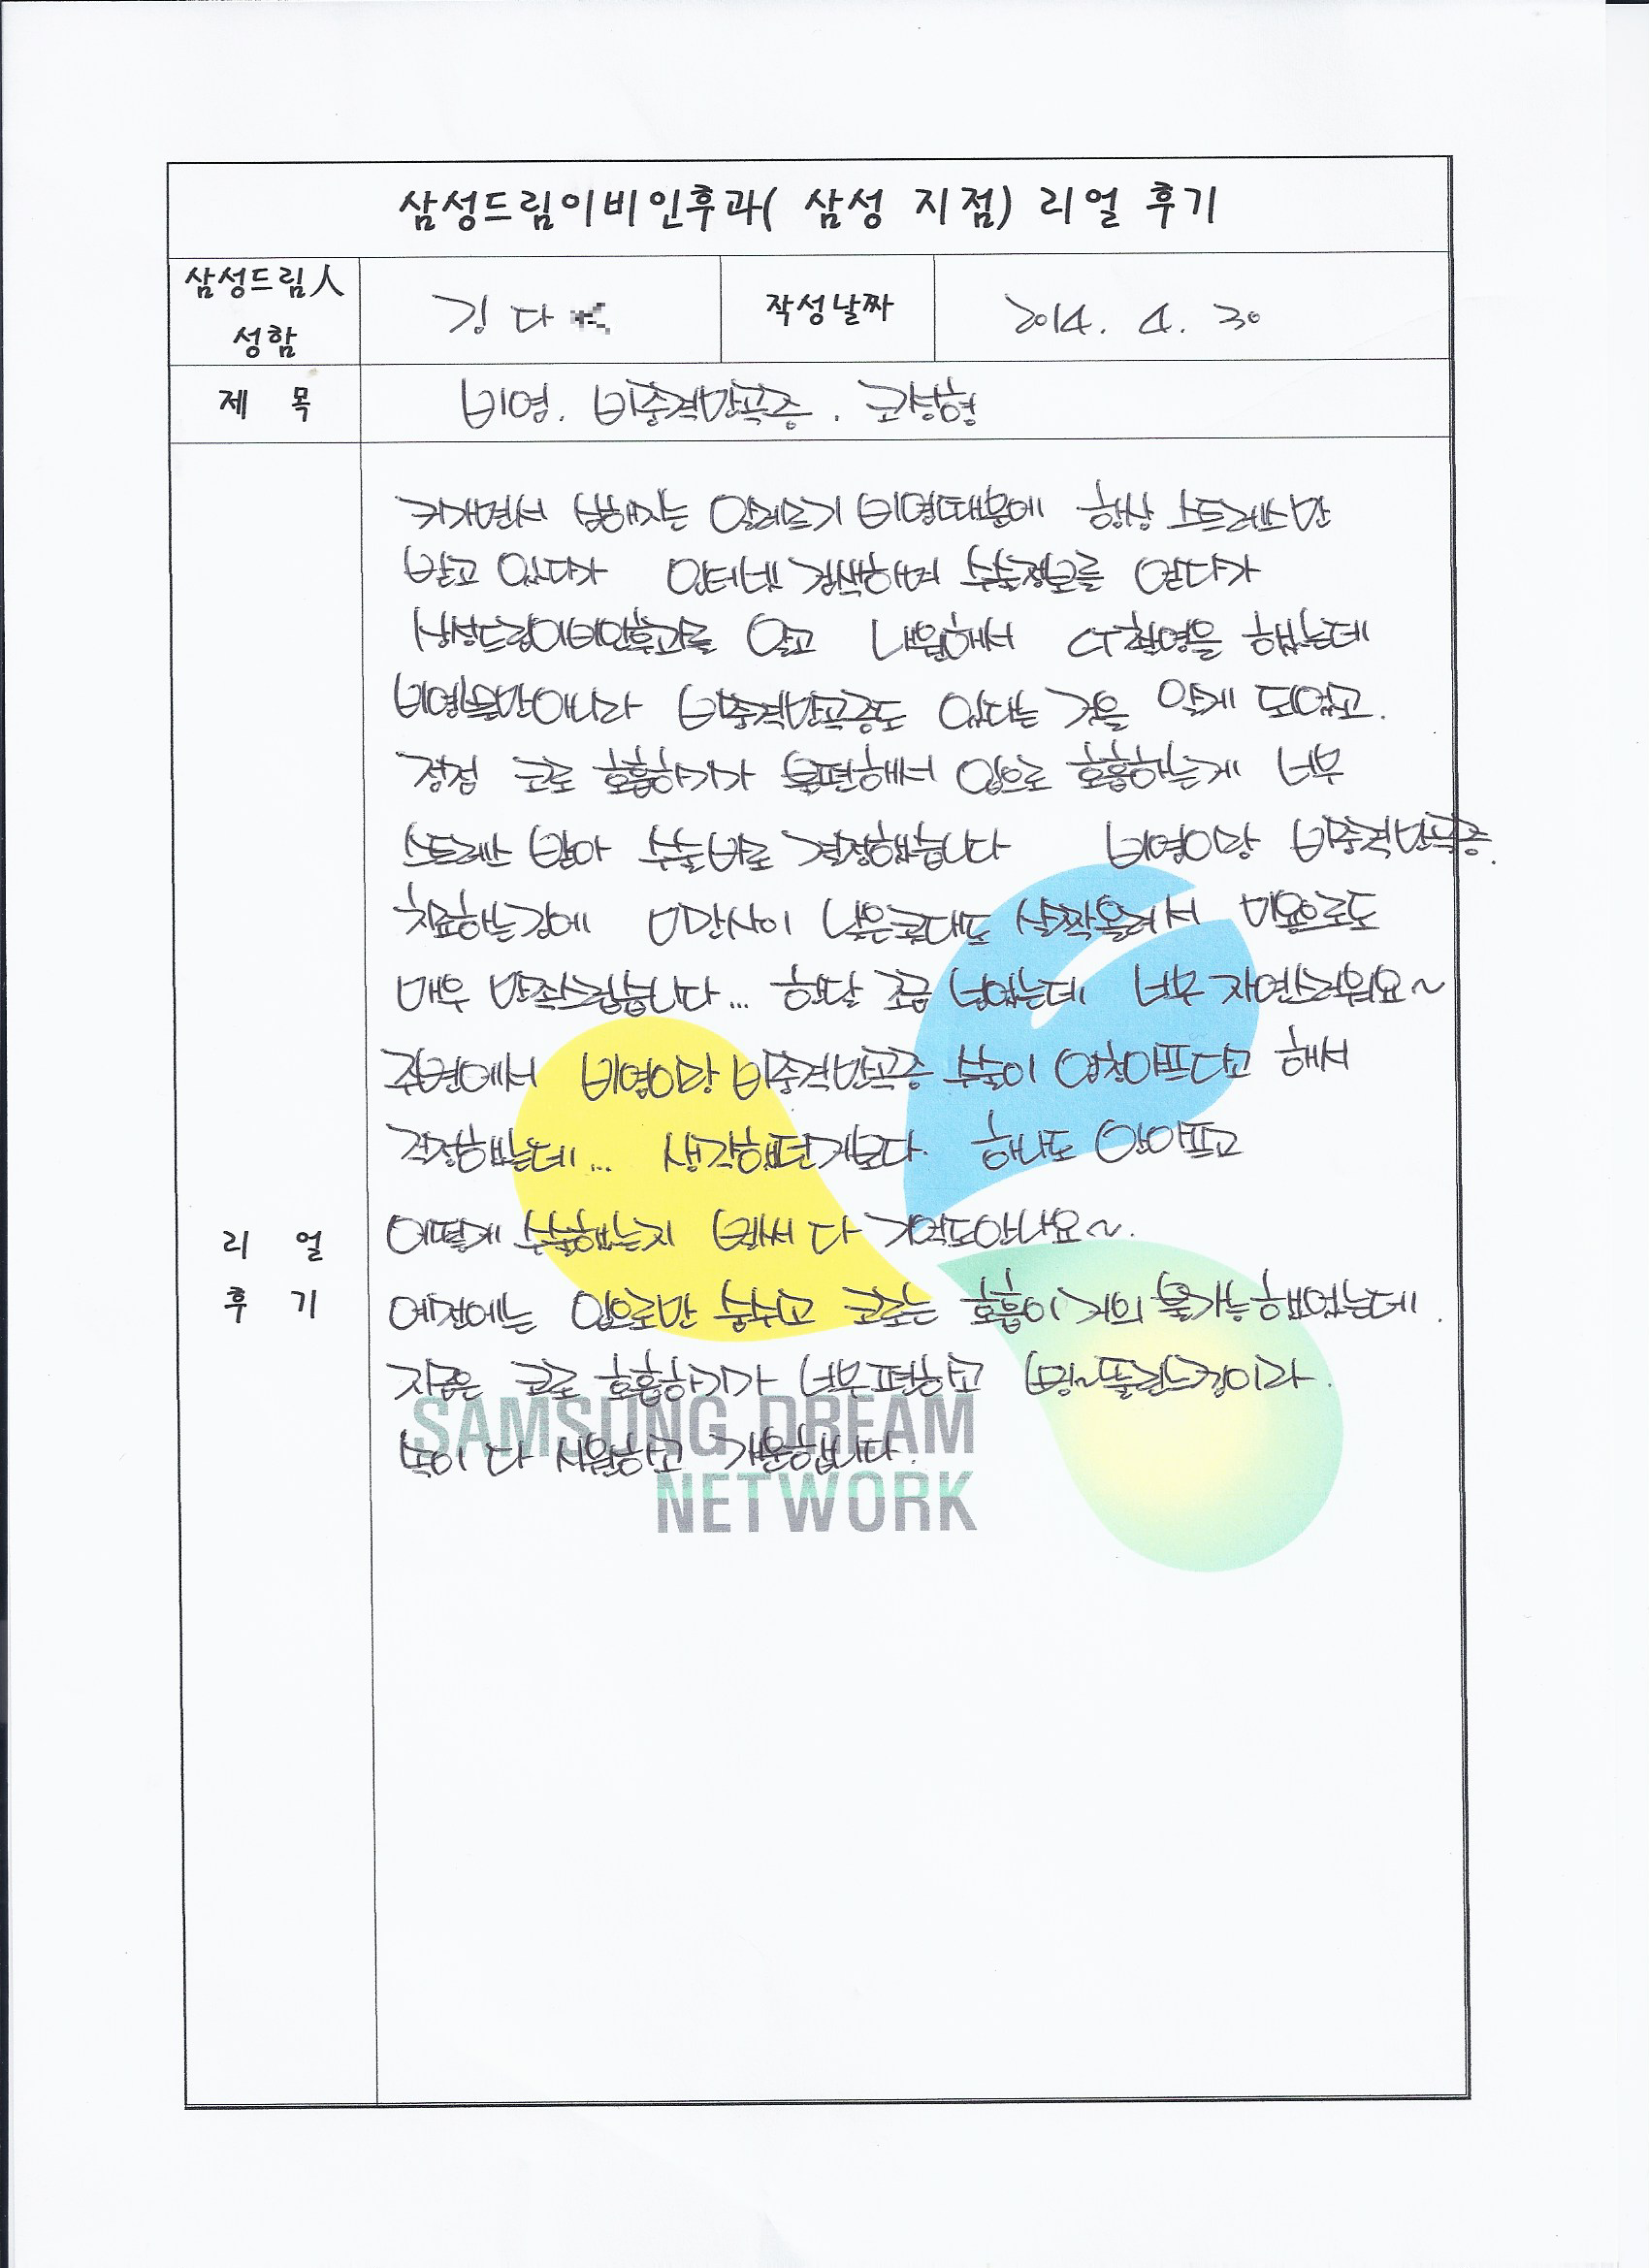 삼성드림이비인후과( 삼성 지점) 리얼 후기
삼성드림人 성함 김다 작성날짜 2014. 4. 30
제 목 비염. 비중격만곡증. 코성형
커가면서 심해지는 알레르기 비염때문에 항상 스트레스만
받고 있다가 인터넷 검색하며 수술정보를 얻다가
삼성드림이비인후과를 알고 내원해서 CT촬영을 했는데
비염뿐만아니라 비중격만곡증도 있다는 것을 알게 되었고.
점점 코로 호흡하기가 불편해서 입으로 호흡하는게 너무
스트레스 받아 수술바로 결정했습니다 비염이랑 비중격만곡증.
치료하는김에 미간사이 낮은콧대도 살짝올려서 미용으로도
매우 만족스럽습니다... 한달 조금 넘었는데 너무 자연스러워요~
주변에서 비염이랑 비중격만곡증 수술이 엄청아프다고 해서
걱정했는데... 생각했던거보다. 하나도 안아프고
어떻게 수술했는지 벌써 다 기억도안나요~.
예전에는 입으로만 숨쉬고 코로는 호흡이 거의 불가능했었는데.
지금은 코로 호흡하기가 너무편하고 뻥~뚫린느낌이라.
속이 다 시원하고 개운합니다.
리 얼
후 기
SAMSUNG DREAM
NETWORK